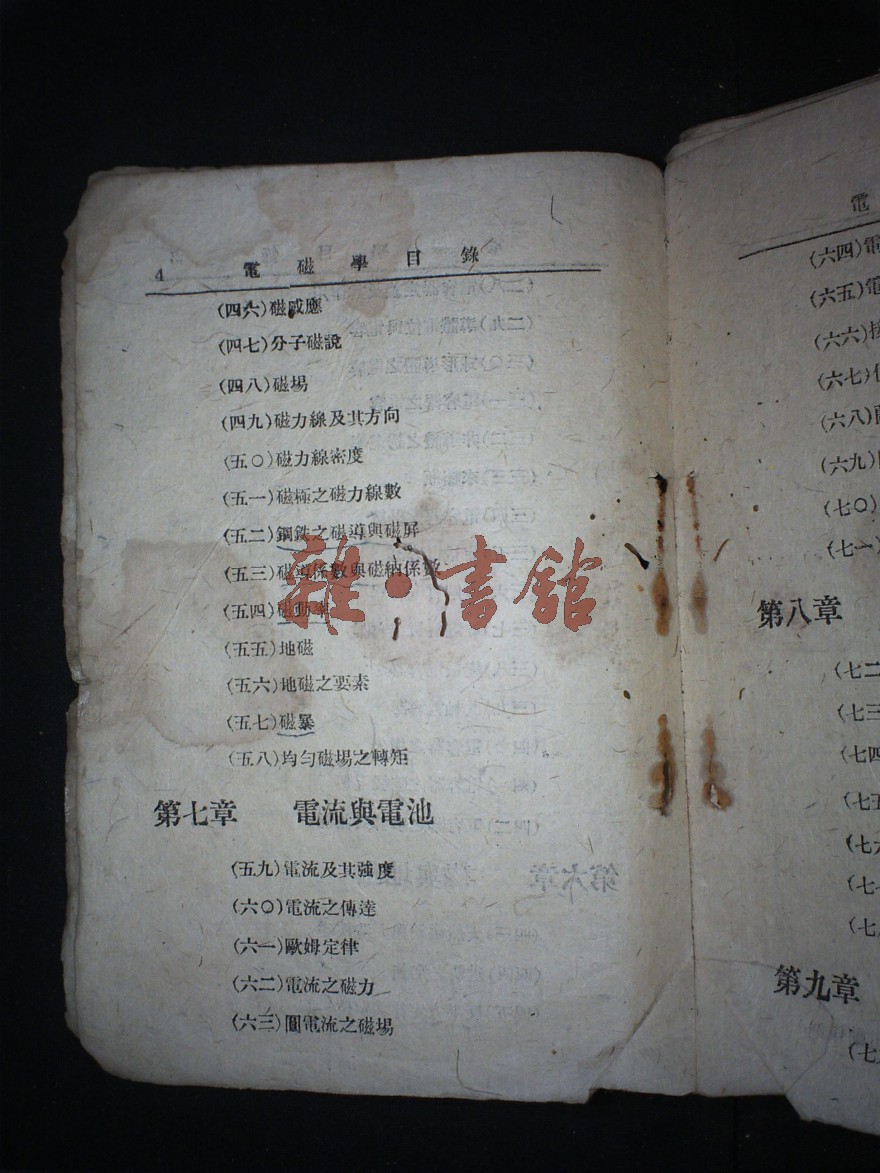 4 電磁學目錄
(四六)磁感應
(四七)分子磁說
(四八)磁場
(四九)磁力線及其方向
(五〇)磁力線密度
(五一)磁極之磁力線數
(五二)鋼鉄之磁導與磁屏
(五三)磁導係數與磁納係數
(五四)磁動率
(五五)地磁
(五六)地磁之要素
(五七)磁暴
(五八)均勻磁場之轉矩
第七章 電流與電池
(五九)電流及其強度
(六〇)電流之傳達
(六一)歐姆定律
(六二)電流之磁力
(六三)圓電流之磁場
雜·書館
電
(六四)電
(六五)電
(六六)
(六七)
(六八)
(六九)
(七〇)
(七一)
第八章
(七二
(七三
(七四
(七五
(七六
(七
(七
第九章
(七